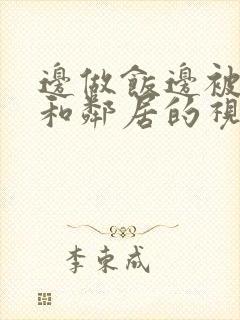 邊做飯邊被
和鄰居的視
李束成